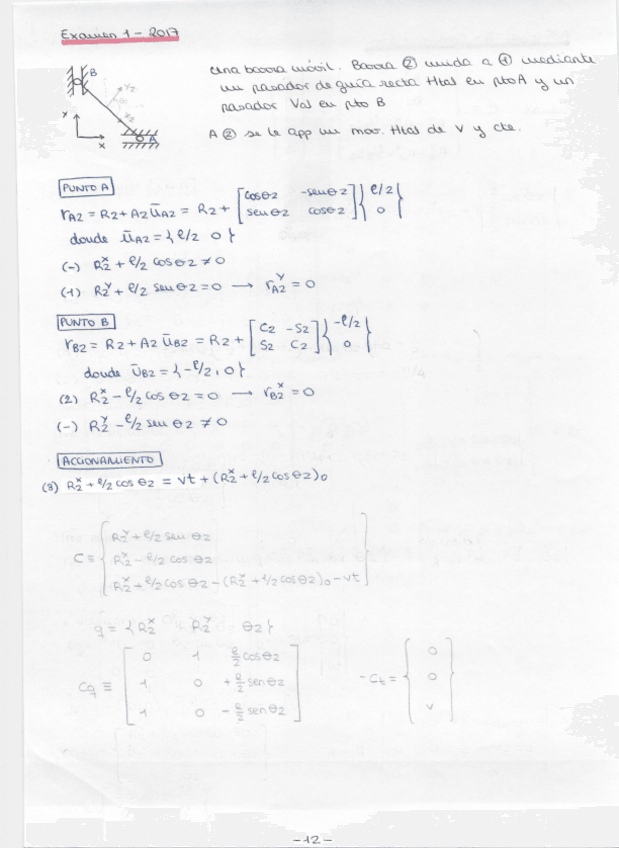 Examen 1 - 2017
una barra móvil. Barra ② unida a ① mediante
un pasador de guía recta Htal en pto A y un
pasador Val en pto B
A ② se le app un mov. Htal de V y cte.
B
Y2
X2
A
Y
X
PUNTO A
rA2 = R2 + A2 ūA2 = R2 + [cosθ2 -senθ2; senθ2 cosθ2] {ℓ/2; 0}
donde ūA2 = {ℓ/2 0}
(-) R2^x + ℓ/2 cosθ2 ≠ 0
(1) R2^Y + ℓ/2 senθ2 = 0 → rA2^Y = 0
PUNTO B
rB2 = R2 + A2 ūB2 = R2 + [C2 -S2; S2 C2] {-ℓ/2; 0}
donde ūB2 = {-ℓ/2, 0}
(2) R2^x - ℓ/2 cosθ2 = 0 → rB2^x = 0
(-) R2^Y - ℓ/2 senθ2 ≠ 0
ACCIONAMIENTO
(3) R2^x + ℓ/2 cosθ2 = Vt + (R2^x + ℓ/2 cosθ2)0
C ≡ { R2^Y + ℓ/2 senθ2
R2^x - ℓ/2 cosθ2
R2^x + ℓ/2 cosθ2 - (R2^x + ℓ/2 cosθ2)0 - vt }
q = {R2^x R2^Y θ2}
Cq ≡ [0 1 ℓ/2 cosθ2
1 0 +ℓ/2 senθ2
1 0 -ℓ/2 senθ2]
-Ct = {0
0
v}
-12-